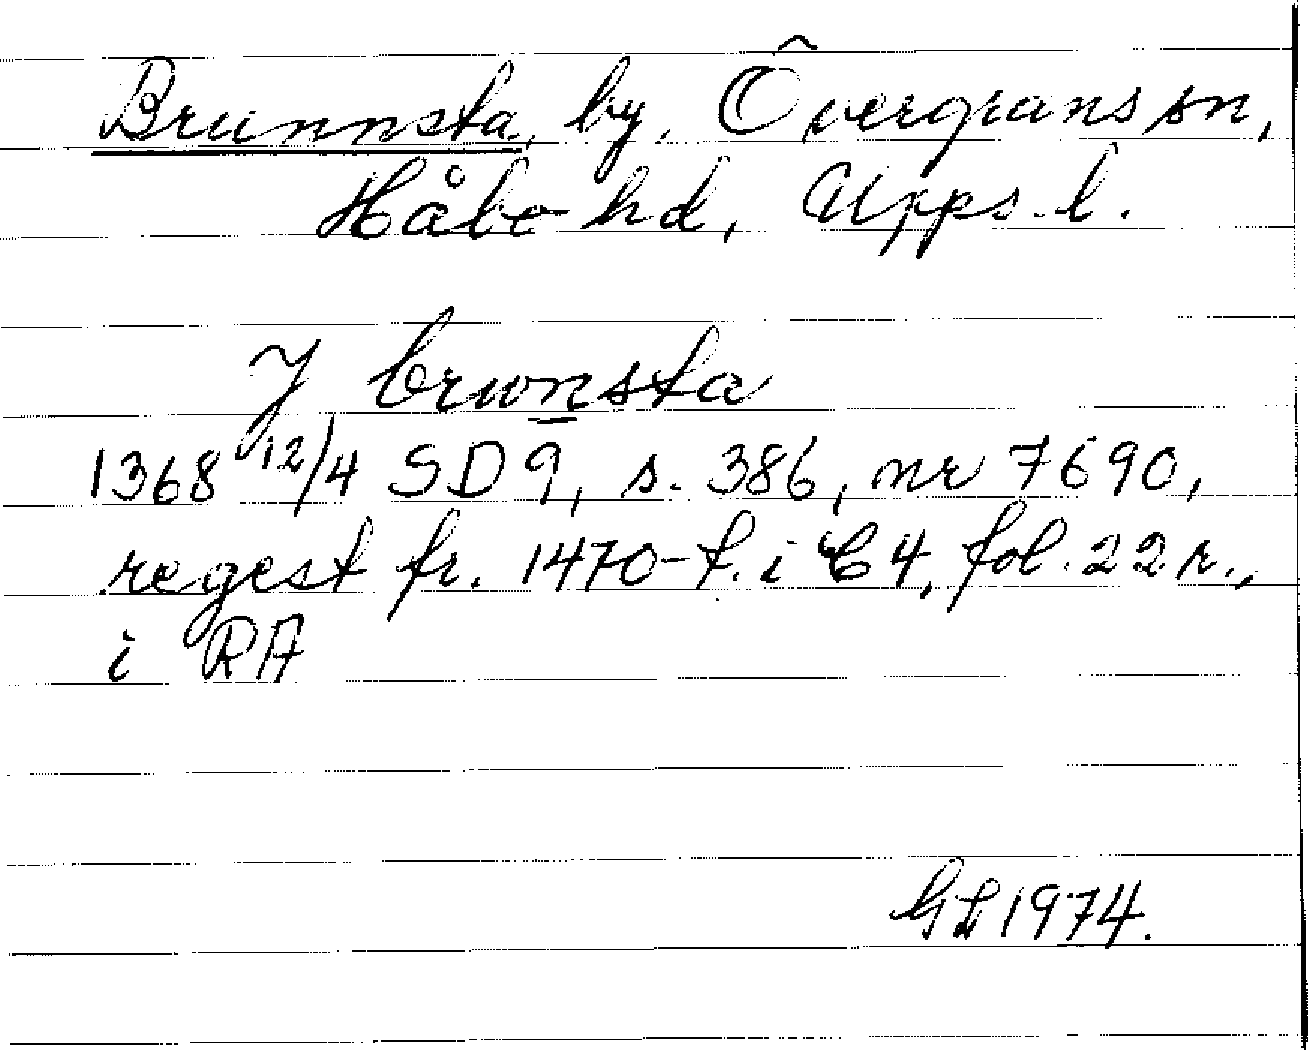 Brunnsta, by, Övergrans sn,
Håbo hd, Upps. l.
J brwnsta
1368 12/4 SD 9, s. 386, nr 7690,
regest fr. 1470-t. i C 4, fol. 22 r.,
i RA
GL 1974.